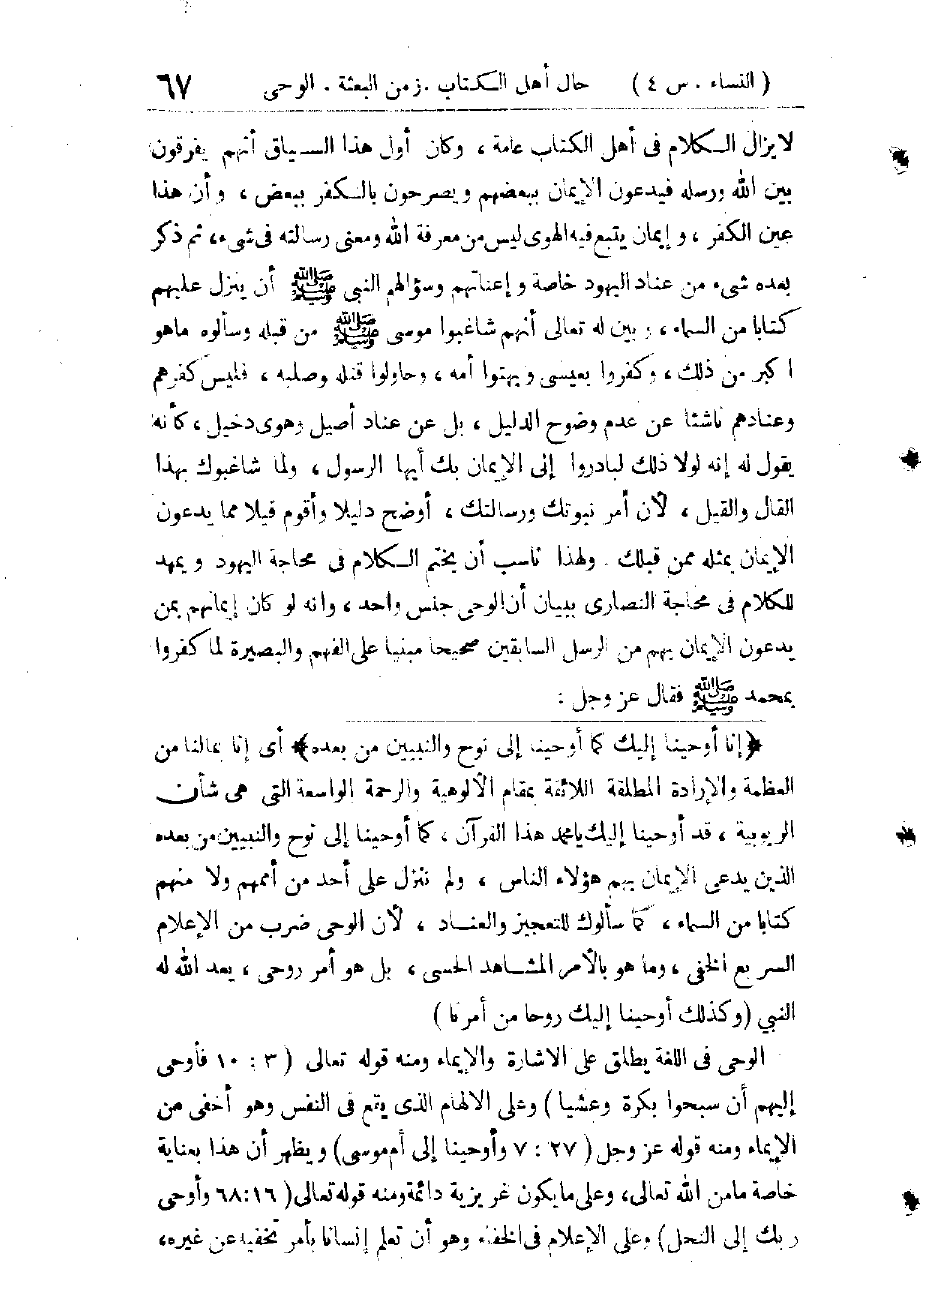 ( النساء . س ٤ ) حال أهل الكتاب . زمن البعثة . الوحى ٦٧
لا يزال الكلام فى أهل الكتاب عامة ، وكان أول هذا السياق أنهم يفرقون
بين الله ورسله فيدعون الإيمان ببعضهم ويصرحون بالكفر ببعض ، وأن هذا
عين الكفر ، وإيمان يتبع فيه الهوى ليس من معرفة الله ومعنى رسالته فى شىء، ثم ذكر
بعده شىء من عناد اليهود خاصة وإعناتهم وسؤالهم النبى ﷺ أن ينزل عليهم
كتابا من السماء ، وبين له تعالى أنهم شاغبوا موسى ﷺ من قبله وسألوه ما هو
اكبر من ذلك ، وكفروا بعيسى وبهتوا أمه ، وحاولوا قتله وصلبه ، فليس كفرهم
وعنادهم ناشئا عن عدم وضوح الدليل ، بل عن عناد أصيل وهوى دخيل ، كأنه
يقول له إنه لولا ذلك لبادروا إلى الإيمان بك أيها الرسول ، ولما شاغبوك بهذا
القال والقيل ، لأن أمر نبوتك ورسالتك ، أوضح دليلا وأقوم قيلا مما يدعون
الإيمان بمثله ممن قبلك . ولهذا ناسب أن يختم الكلام فى محاجة اليهود ويمهد
للكلام فى محاجة النصارى ببيان أن الوحى جنس واحد ، وانه لو كان إيمانهم بمن
يدعون الإيمان بهم من الرسل السابقين صحيحا مبنيا على الفهم والبصيرة لما كفروا
بمحمد ﷺ فقال عز وجل :
﴿ إنا أوحينا إليك كما أوحينا إلى نوح والنبيين من بعده ﴾ أى إنا بمالنا من
العظمة والإرادة المطلقة اللائقة بمقام الألوهية والرحمة الواسعة التى هى شأن
الربوبية ، قد أوحينا إليك يا محمد هذا القرآن ، كما أوحينا إلى نوح والنبيين من بعده
الذين يدعى الإيمان بهم هؤلاء الناس ، ولم ننزل على أحد من أممهم ولا منهم
كتابا من السماء ، كما سألوك للتعجيز والعناد ، لأن الوحى ضرب من الإعلام
السريع الخفى ، وما هو بالأمر المشاهد الحسى ، بل هو أمر روحى ، يعد الله له
النبي ( وكذلك أوحينا إليك روحا من أمرنا )
الوحى فى اللغة يطلق على الاشارة والإيماء ومنه قوله تعالى ( ٣ : ١٠ فأوحى
إليهم أن سبحوا بكرة وعشيا ) وعلى الالهام الذى يقع فى النفس وهو أخفى من
الإيماء ومنه قوله عز وجل ( ٢٧ : ٧ وأوحينا إلى أم موسى ) ويظهر أن هذا بعناية
خاصة مامن الله تعالى، وعلى ما يكون غريزية دائمة ومنه قوله تعالى ( ٦٨:١٦ وأوحى
ربك إلى النحل ) وعلى الإعلام فى الخفاء وهو أن تعلم إنسانا بأمر تخفيه عن غيره،